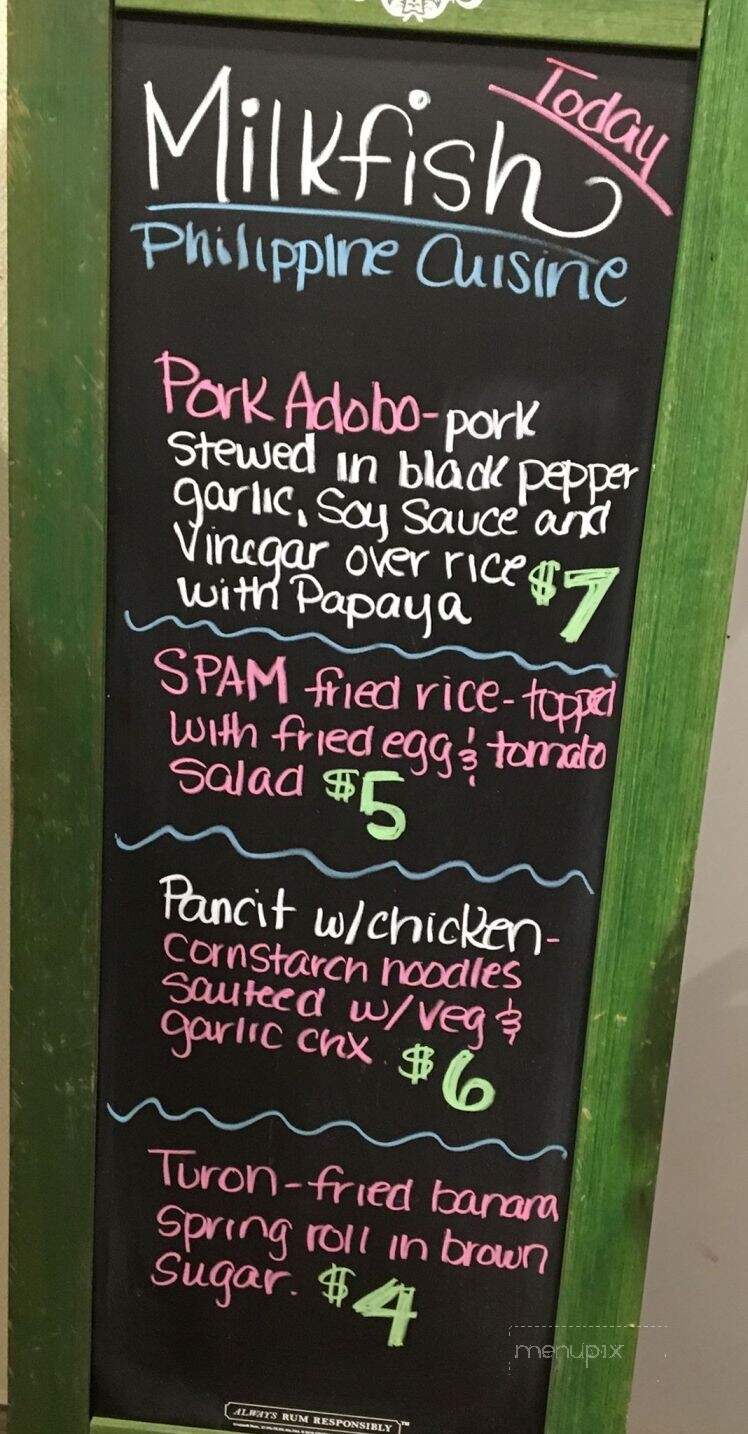 Today
Milkfish
Philippine Cuisine
Pork Adobo- pork
stewed in black pepper
garlic, Soy Sauce and
Vinegar over rice $7
with Papaya
SPAM fried rice- topped
with fried egg & tomato
Salad $5
Pancit w/chicken-
cornstarch noodles
sauteed w/veg &
garlic chx. $6
Turon-fried banana
spring roll in brown
sugar. $4
menupix
ALWAYS RUM RESPONSIBLY™